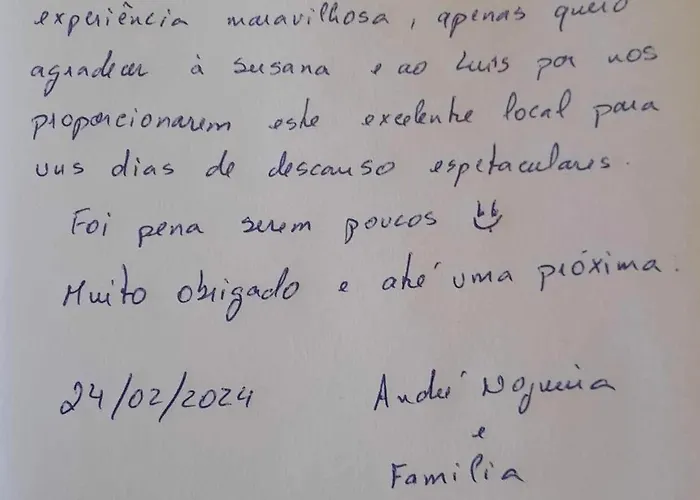 experiência maravilhosa, apenas quero
agradecer à Susana e ao Luís por nos
proporcionarem este excelente local para
uns dias de descanso espetaculares.
Foi pena serem poucos
Muito obrigado e até uma próxima.
24/02/2024
André Nogueira
e
Família